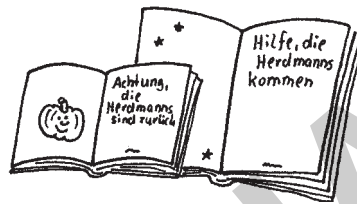 Achtung,
die
Herdmanns
sind zurück
Hilfe, die
Herdmanns
kommen